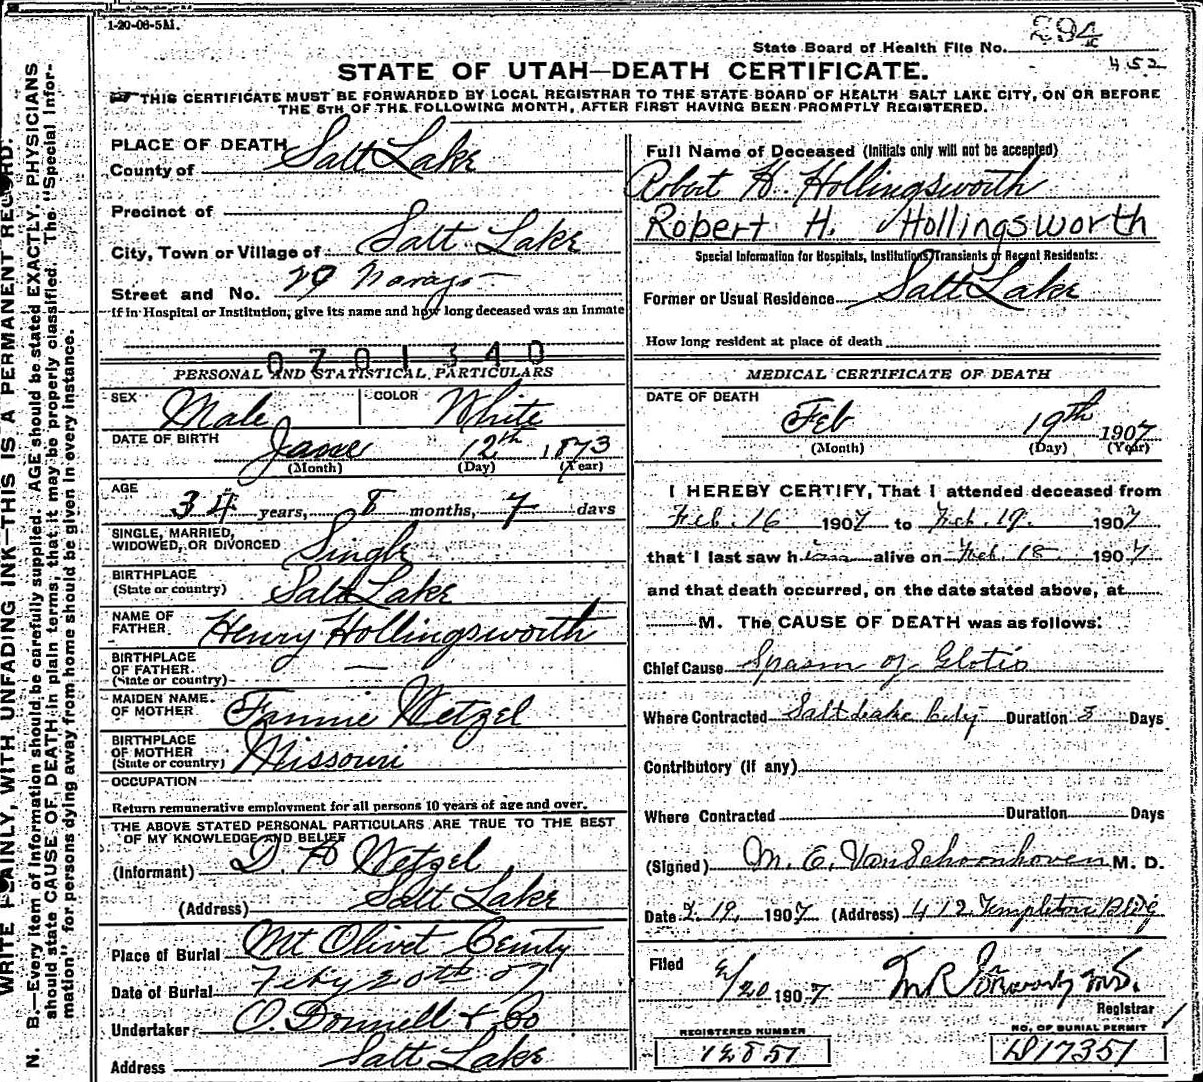 1-20-06-5M.
State Board of Health File No. 294
452
STATE OF UTAH—DEATH CERTIFICATE.
THIS CERTIFICATE MUST BE FORWARDED BY LOCAL REGISTRAR TO THE STATE BOARD OF HEALTH SALT LAKE CITY, ON OR BEFORE
THE 5TH OF THE FOLLOWING MONTH, AFTER FIRST HAVING BEEN PROMPTLY REGISTERED.
WRITE PLAINLY, WITH UNFADING INK—THIS IS A PERMANENT RECORD.
N. B.—Every item of information should be carefully supplied. AGE should be stated EXACTLY. PHYSICIANS
should state CAUSE OF DEATH in plain terms, that it may be properly classified. The "Special Infor-
mation" for persons dying away from home should be given in every instance.
PLACE OF DEATH
County of Salt Lake
Precinct of
City, Town or Village of Salt Lake
Street and No. 29 Navajo
If in Hospital or Institution, give its name and how long deceased was an Inmate
0701340
PERSONAL AND STATISTICAL PARTICULARS
SEX Male COLOR White
DATE OF BIRTH June 12th 1873
(Month) (Day) (Year)
AGE 34 years, 8 months, 7 days
SINGLE, MARRIED,
WIDOWED, OR DIVORCED Single
BIRTHPLACE
(State or country) Salt Lake
NAME OF
FATHER Henry Hollingsworth
BIRTHPLACE
OF FATHER —
(State or country)
MAIDEN NAME
OF MOTHER Fannie Wetzel
BIRTHPLACE
OF MOTHER Missouri
(State or country)
OCCUPATION
Return remunerative employment for all persons 10 years of age and over.
THE ABOVE STATED PERSONAL PARTICULARS ARE TRUE TO THE BEST
OF MY KNOWLEDGE AND BELIEF
(Informant) Wetzel
(Address) Salt Lake
Place of Burial Mt Olivet Cemty
Date of Burial Feby 20th 07
Undertaker O. Donnell & Co
Address Salt Lake
Full Name of Deceased (Initials only will not be accepted)
Robert H. Hollingsworth
Robert H. Hollingsworth
Special Information for Hospitals, Institutions, Transients or Recent Residents:
Former or Usual Residence Salt Lake
How long resident at place of death
MEDICAL CERTIFICATE OF DEATH
DATE OF DEATH
Feb 19th 1907
(Month) (Day) (Year)
I HEREBY CERTIFY, That I attended deceased from
Feb. 16 1907 to Feb. 19. 1907
that I last saw him alive on Feb. 18 1907
and that death occurred, on the date stated above, at
M. The CAUSE OF DEATH was as follows:
Chief Cause Spasm of Glotis
Where Contracted Salt Lake City Duration 3 Days
Contributory (if any)
Where Contracted Duration Days
(Signed) M. E. Van Schoonhoven M. D.
Date 2.19, 1907 (Address) 412 Templeton Bldg
Filed 2/20 1907
Registrar
REGISTERED NUMBER
12851
NO. OF BURIAL PERMIT
D17351